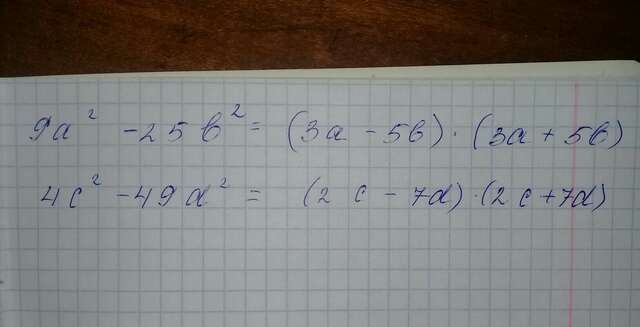 9a² - 25b² = (3a - 5b) · (3a + 5b)
4c² - 49d² = (2c - 7d) · (2c + 7d)